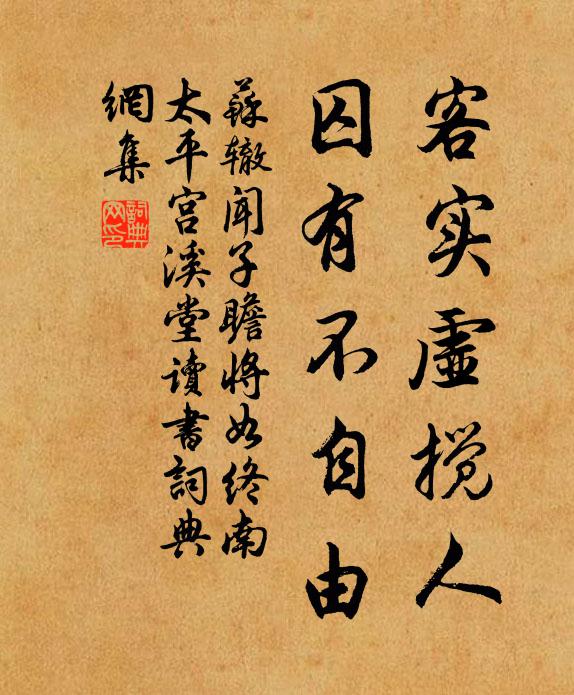 客实虚搅人
囚有不自由
蘇辙闻子瞻将如终南
太平宫溪堂读書詞典
網集
詞典
网印